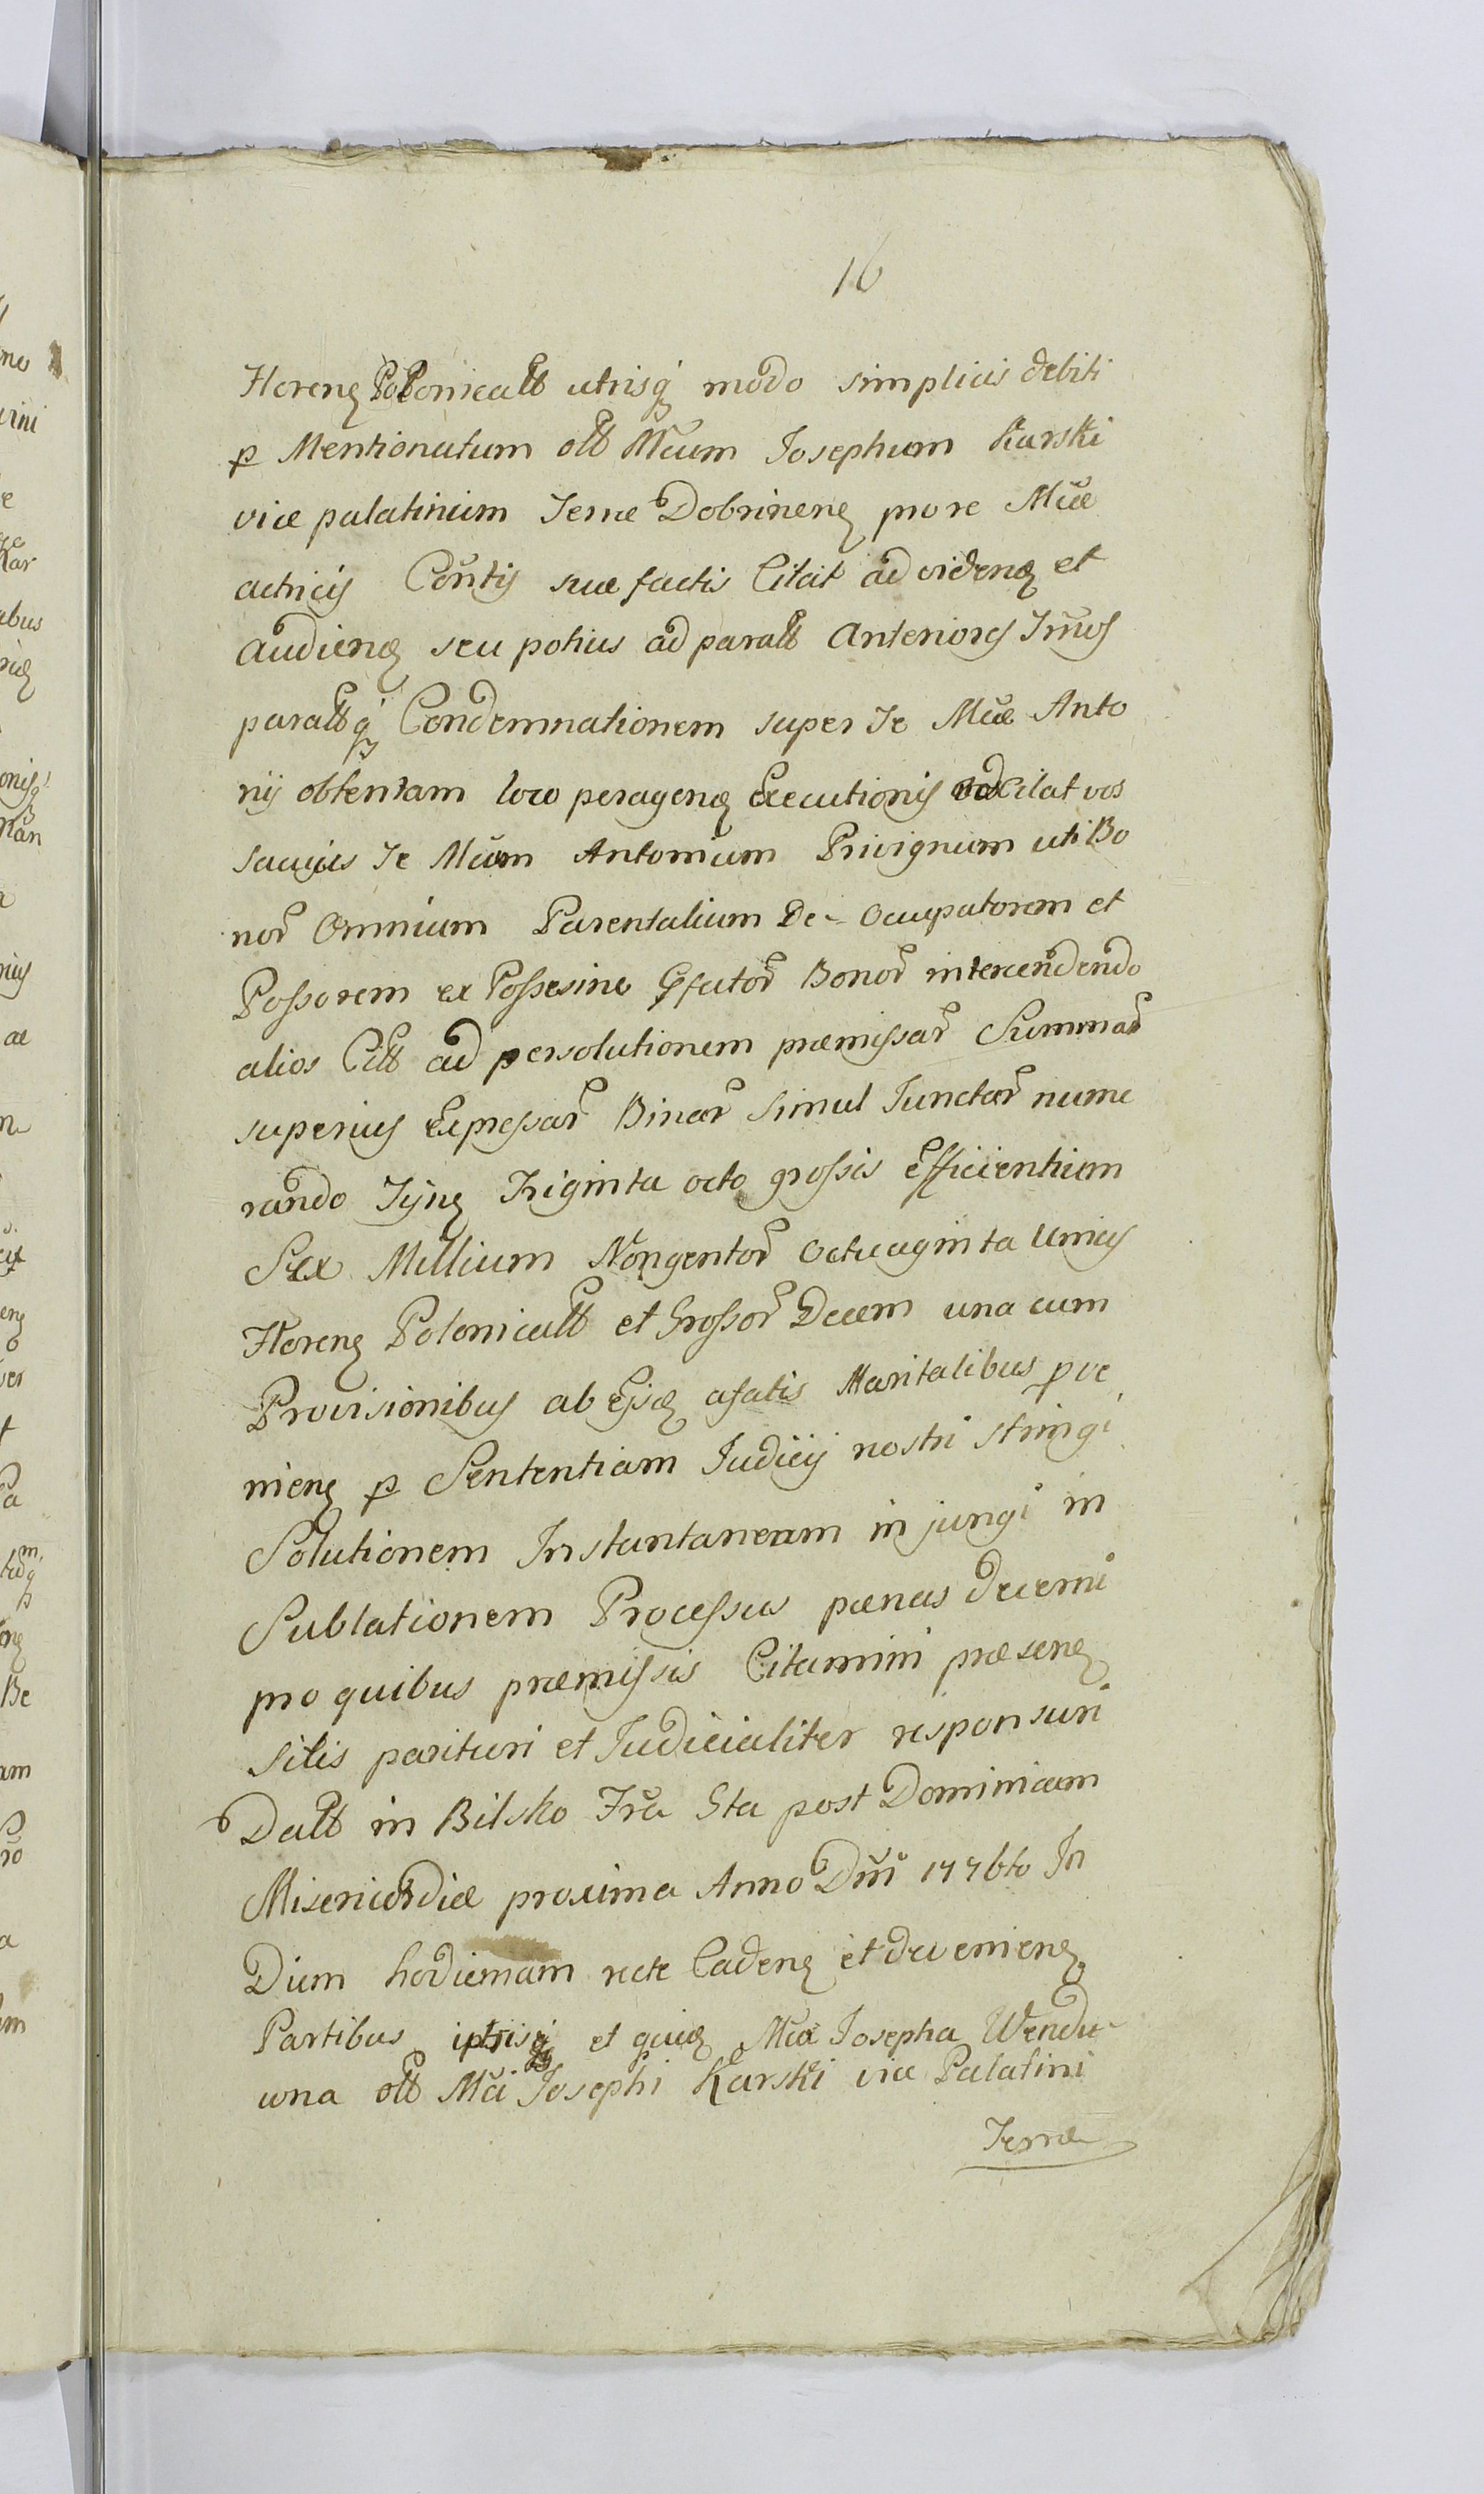 16
Floren Polonicalt utrisq modo simplicis debiti
p Mentionatum olt Mcum Josephum Karski
vice palatinum Terræ Dobrinen prore Mcæ
actricis Contis suæ factis Citat ad viden et
audien seu potius ad paralt Anteriores Trnos
paraltq Condemnationem super Te Mce Anto
nij obtentam loco peragen Executionis Citat vos
Te Mcum Antonium Privignum uti Bo
nor Omnium Parentalium De- Ocupatorem et
Possorem ex Possesine Bonor intercendendo
alios Citt ad persolutionem præmissar Summar
superius Expressar Binar Simul Junctar nume
rando Tijn Triginta octo grossis efficientium
Sex Millium Nongentor Octuaginta Unius
Floren Polonicalt et Grossor Decem una cum
Provisionibus ab Ejsd asatis Maritalibus pve
nien p Sententiam Judicij nostri stringi
Solutionem Instantaneam in jungi in
Sublationem Processus pœnas decerni
pro quibus præmissis Citamini præsen
sitis parituri et Judicialiter responsuri
Datt in Bilsko Fra Sta post Dominicam
Misericordiæ proxima Anno Dni 1776to In
Diem hodiernam recte Caden et devenien
Partibus iptrisq et quid Mca Josepha Wendu
wna olt Mci Josephi Karski vice Palatini
Terræ